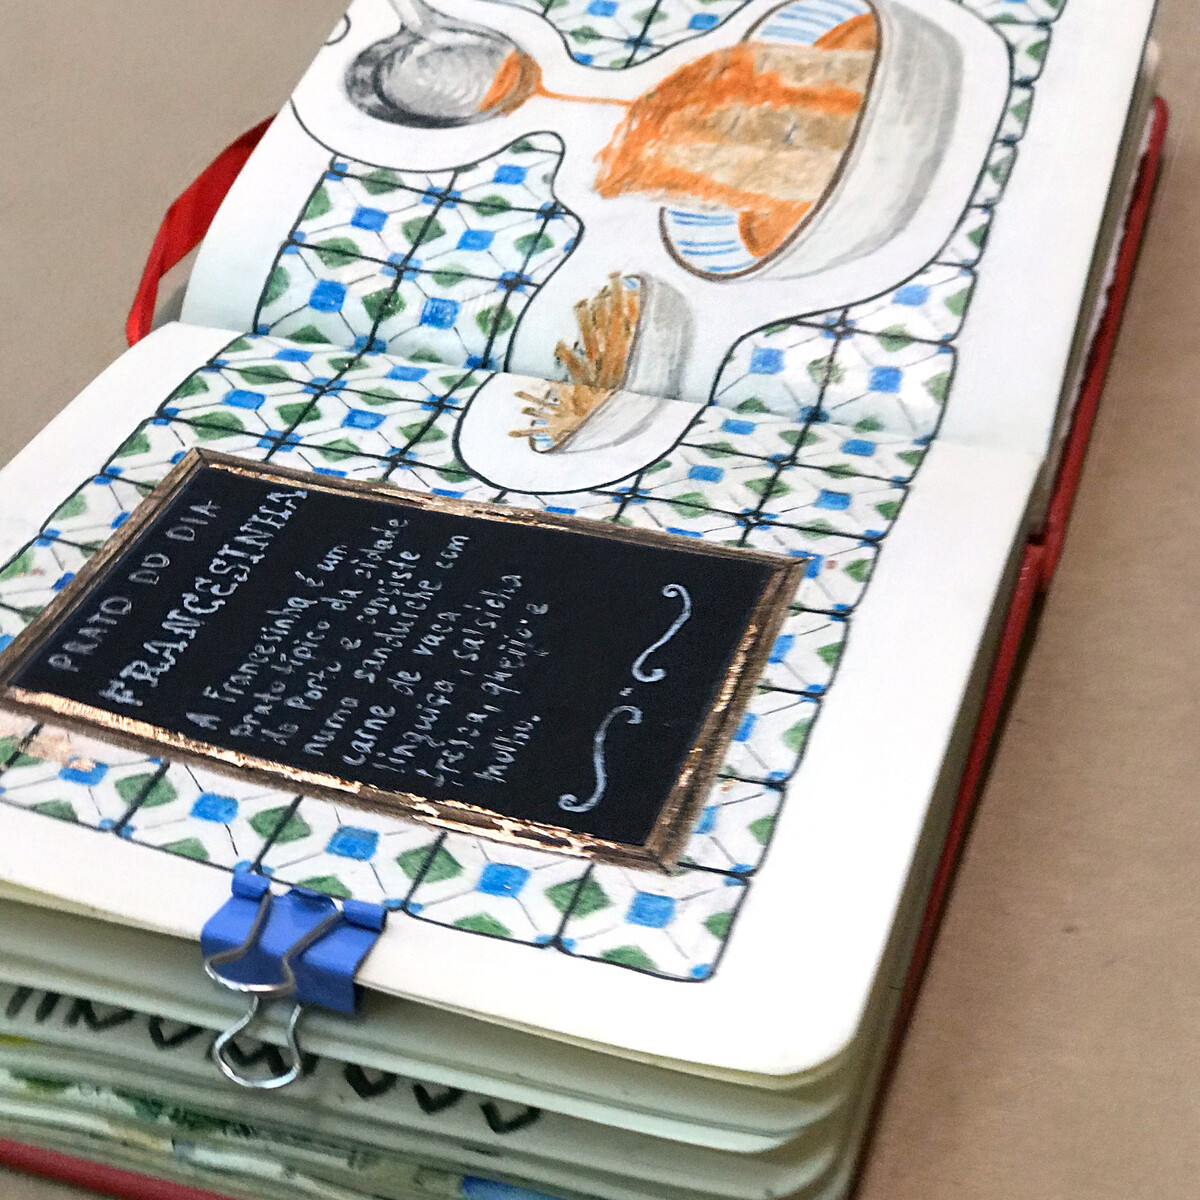 PRATO DO DIA
FRANCESINHA
A Francesinha é um
prato típico da cidade
do Porto e consiste
numa sanduíche com
carne de vaca
linguiça, salsicha
fresca, queijo e
molho.